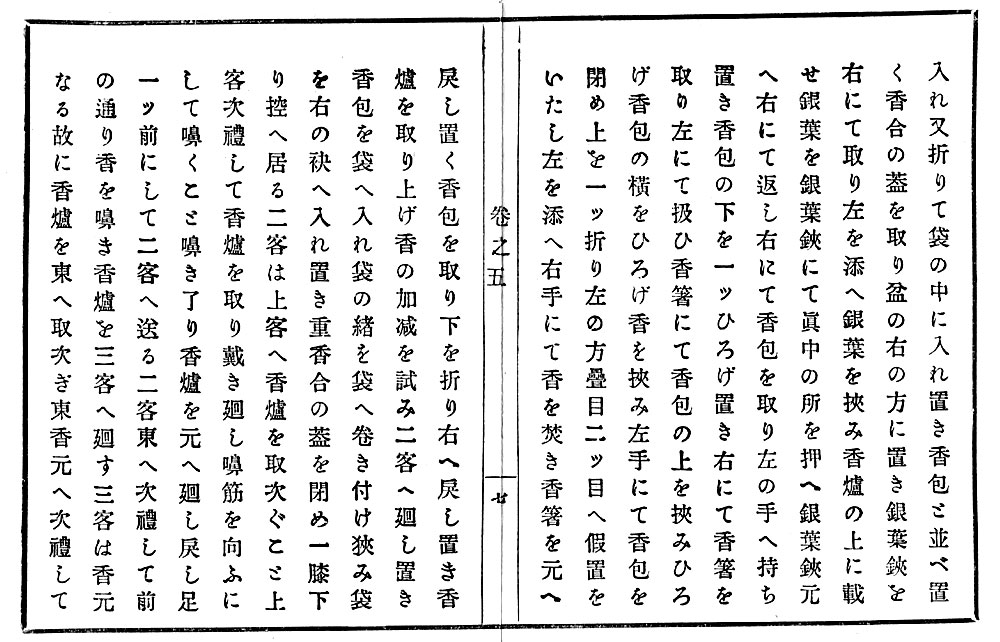 入れ又折りて袋の中に入れ置き香包と並べ置
く香合の葢を取り盆の右の方に置き銀葉鋏を
右にて取り左を添へ銀葉を挾み香爐の上に載
せ銀葉を銀葉鋏にて眞中の所を押へ銀葉鋏元
へ右にて返し右にて香包を取り左の手へ持ち
置き香包の下を一ッひろげ置き右にて香箸を
取り左にて扱ひ香箸にて香包の上を挾みひろ
げ香包の横をひろげ香を挾み左手にて香包を
閉め上を一ッ折り左の方疊目二ッ目へ假置を
いたし左を添へ右手にて香を焚き香箸を元へ
卷之五
七
戾し置く香包を取り下を折り右へ戾し置き香
爐を取り上げ香の加减を試み二客へ廻し置き
香包を袋へ入れ袋の緖を袋へ卷き付け狹み袋
を右の袂へ入れ置き重香合の葢を閉め一膝下
り控へ居る二客は上客へ香爐を取次ぐこと上
客次禮して香爐を取り戴き廻し嗅筋を向ふに
して嗅くこと嗅き了り香爐を元へ廻し戾し足
一ッ前にして二客へ送る二客東へ次禮して前
の通り香を嗅き香爐を三客へ廻す三客は香元
なる故に香爐を東へ取次ぎ東香元へ次禮して